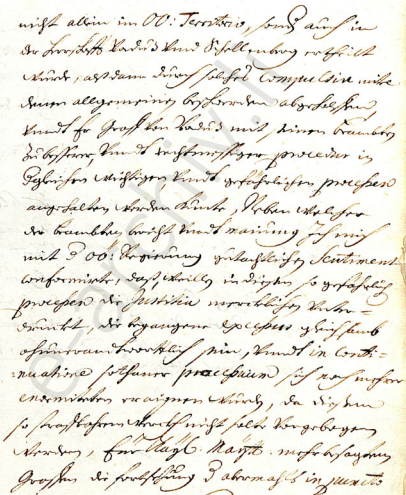 nicht allein im OÖ: Territorio, sond. auch in
der Herrschafft Vaduz vnnd Schellenberg ertheilt
wurde, alß dann durch solches Compulsiv mitte
denen allgemeinen beschwerden abgeholffen,
vnndt Er Graff von Vaduz mit seinen beambten
zu besserer, vnndt rechtmessiger procedur in
dergleichen wichtigen vnndt gefährlichen processen
angehalten werden kunte, Neben welcher
der beambten bericht vnndt mainung Ich mich
mit d OÖ: Regierung guetachtlichen Sentiment
conformirte, daß, weillen in diesen so gefährlich
processen die Justitia mercklichen Unter=
druckt, die begangene excessus gleichsamb
ohnuerantworttlich sein, vnndt in conti=
nuatione sothaner processuum sich noch mehrer
enormiteten eraignen wurden, da diesem
so straffbahren werckh nicht solte vorgebogen
werden, Eur Kayl. Mayt. mehrbesagtem
Graffen die fortsezung d abermahls in puncto